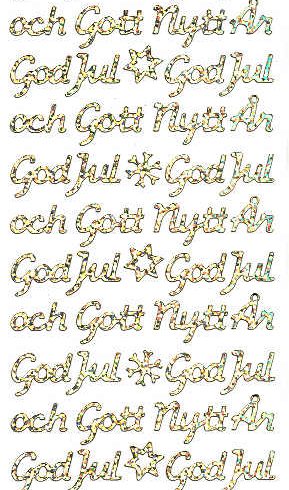 och Gott Nytt År
God Jul God Jul
och Gott Nytt År
God Jul God Jul
och Gott Nytt År
God Jul God Jul
och Gott Nytt År
God Jul God Jul
och Gott Nytt År
God Jul God Jul